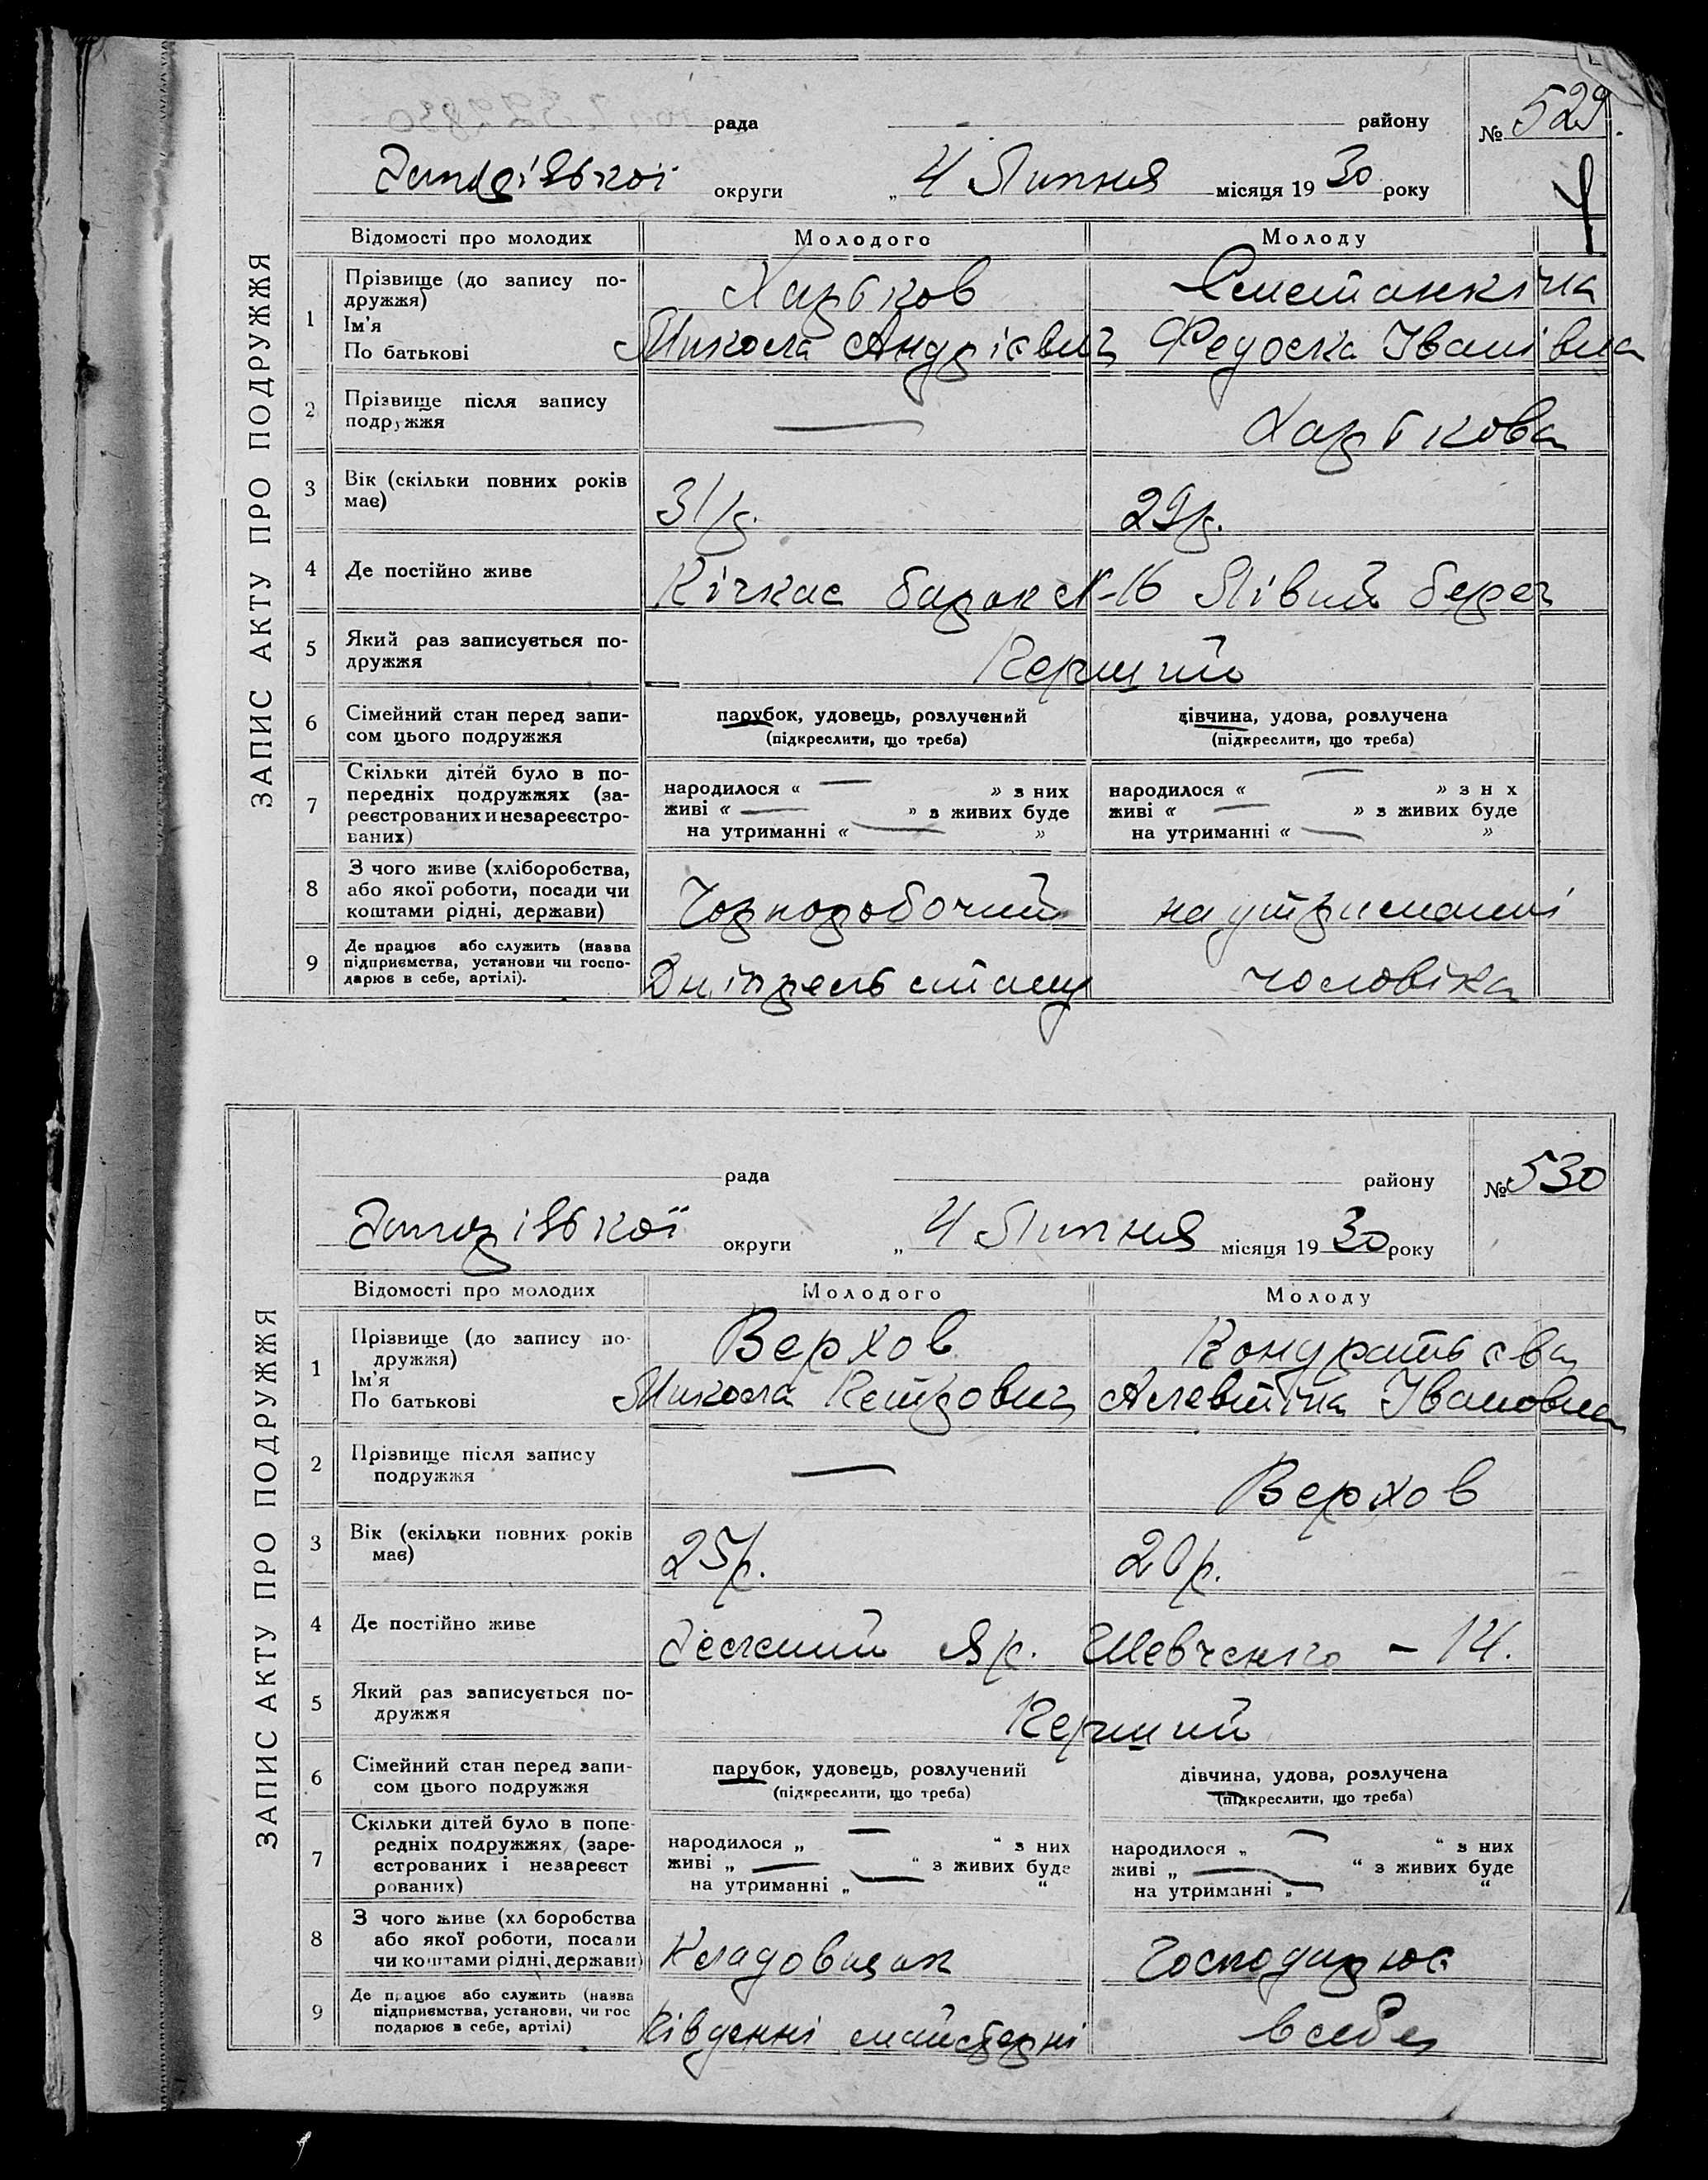 ЗАПИС АКТУ ПРО ПОДРУЖЖЯ
рада району № 529.
округи „ 4 Липня місяця 1930 року
Відомості про молодих Молодого Молоду
1 Прізвище (до запису по-
дружжя)
Ім'я
По батькові
Харьков
Микола Андрієвич Федоска Іванівна
2 Прізвище після запису
подружжя
— Харькова
3 Вік (скільки повних років
має)
31 р. 29 р.
4 Де постійно живе Кічкас барак №-16 Лівий берег
5 Який раз записується по-
дружжя
Перший
6 Сімейний стан перед запи-
сом цього подружжя
парубок, удовець, розлучений
(підкреслити, що треба)
дівчина, удова, розлучена
(підкреслити, що треба)
7 Скільки дітей було в по-
передніх подружжях (за-
реєстрованих и незареєстро-
ваних)
народилося « — » з них
живі « — » з живих буде
на утриманні « — »
народилося « — » з н х
живі « — » з живих буде
на утриманні « — »
8 З чого живе (хліборобства,
або якої роботи, посади чи
коштами рідні, держави)
Чорноробочий на утриманні
9 Де працює або служить (назва
підприємства, установи чи госпо-
дарює в себе, артілі).
Дніпрельстану чоловіка
ЗАПИС АКТУ ПРО ПОДРУЖЖЯ
рада району № 530
округи „ 4 Липня місяця 1930 року
Відомості про молодих Молодого Молоду
1 Прізвище (до запису по-
дружжя)
Ім'я
По батькові
Верхов Кондратьєва
Микола Петрович Алевтіна Івановна
2 Прізвище після запису
подружжя
— Верхов
3 Вік (скільки повних років
має)
25 р. 20 р.
4 Де постійно живе Яр. Шевченко – 14.
5 Який раз записується по-
дружжя
Перший
6 Сімейний стан перед запи-
сом цього подружжя
парубок, удовець, розлучений
(підкреслити, що треба)
дівчина, удова, розлучена
(підкреслити, що треба)
7 Скільки дітей було в попе-
редніх подружжях (заре-
єстрованих і незареєст
рованих)
народилося „ — “ з них
живі „ — “ з живих буде
на утриманні „ — “
народилося „ — “ з них
живі „ — “ з живих буде
на утриманні „ — “
8 З чого живе (хл боробства
або якої роботи, посади
чи коштами рідні, держави)
Кладовщик Господарює
9 Де працює або служить (назва
підприємства, установи, чи гос
подарює в себе, артілі)
Південні майстерні в себе